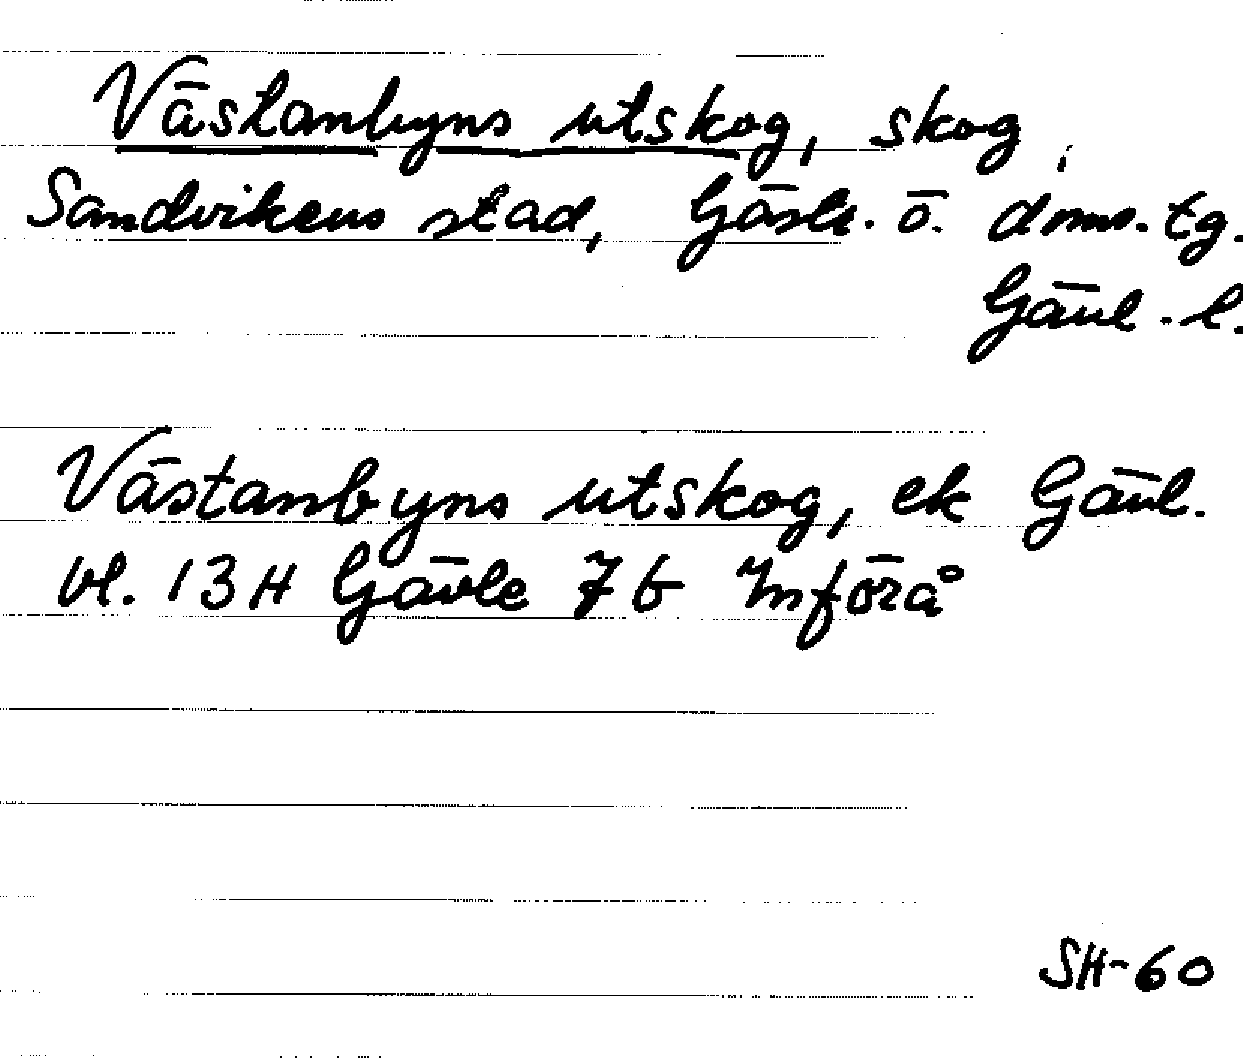 Västanbyns utskog, skog,
Sandvikens stad, Gästr. ö. doms. tg.
Gävl. l.
Västanbyns utskog, ek Gävl.
bl. 13 H Gävle 7 b Införå
SH-60